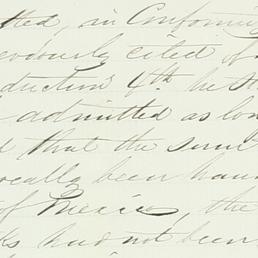 tted, in Conformi
eviously cited of
duction 4th he sh
admitted as lon
d that the sum
ocally been han
of Mexico, the
ks had not been